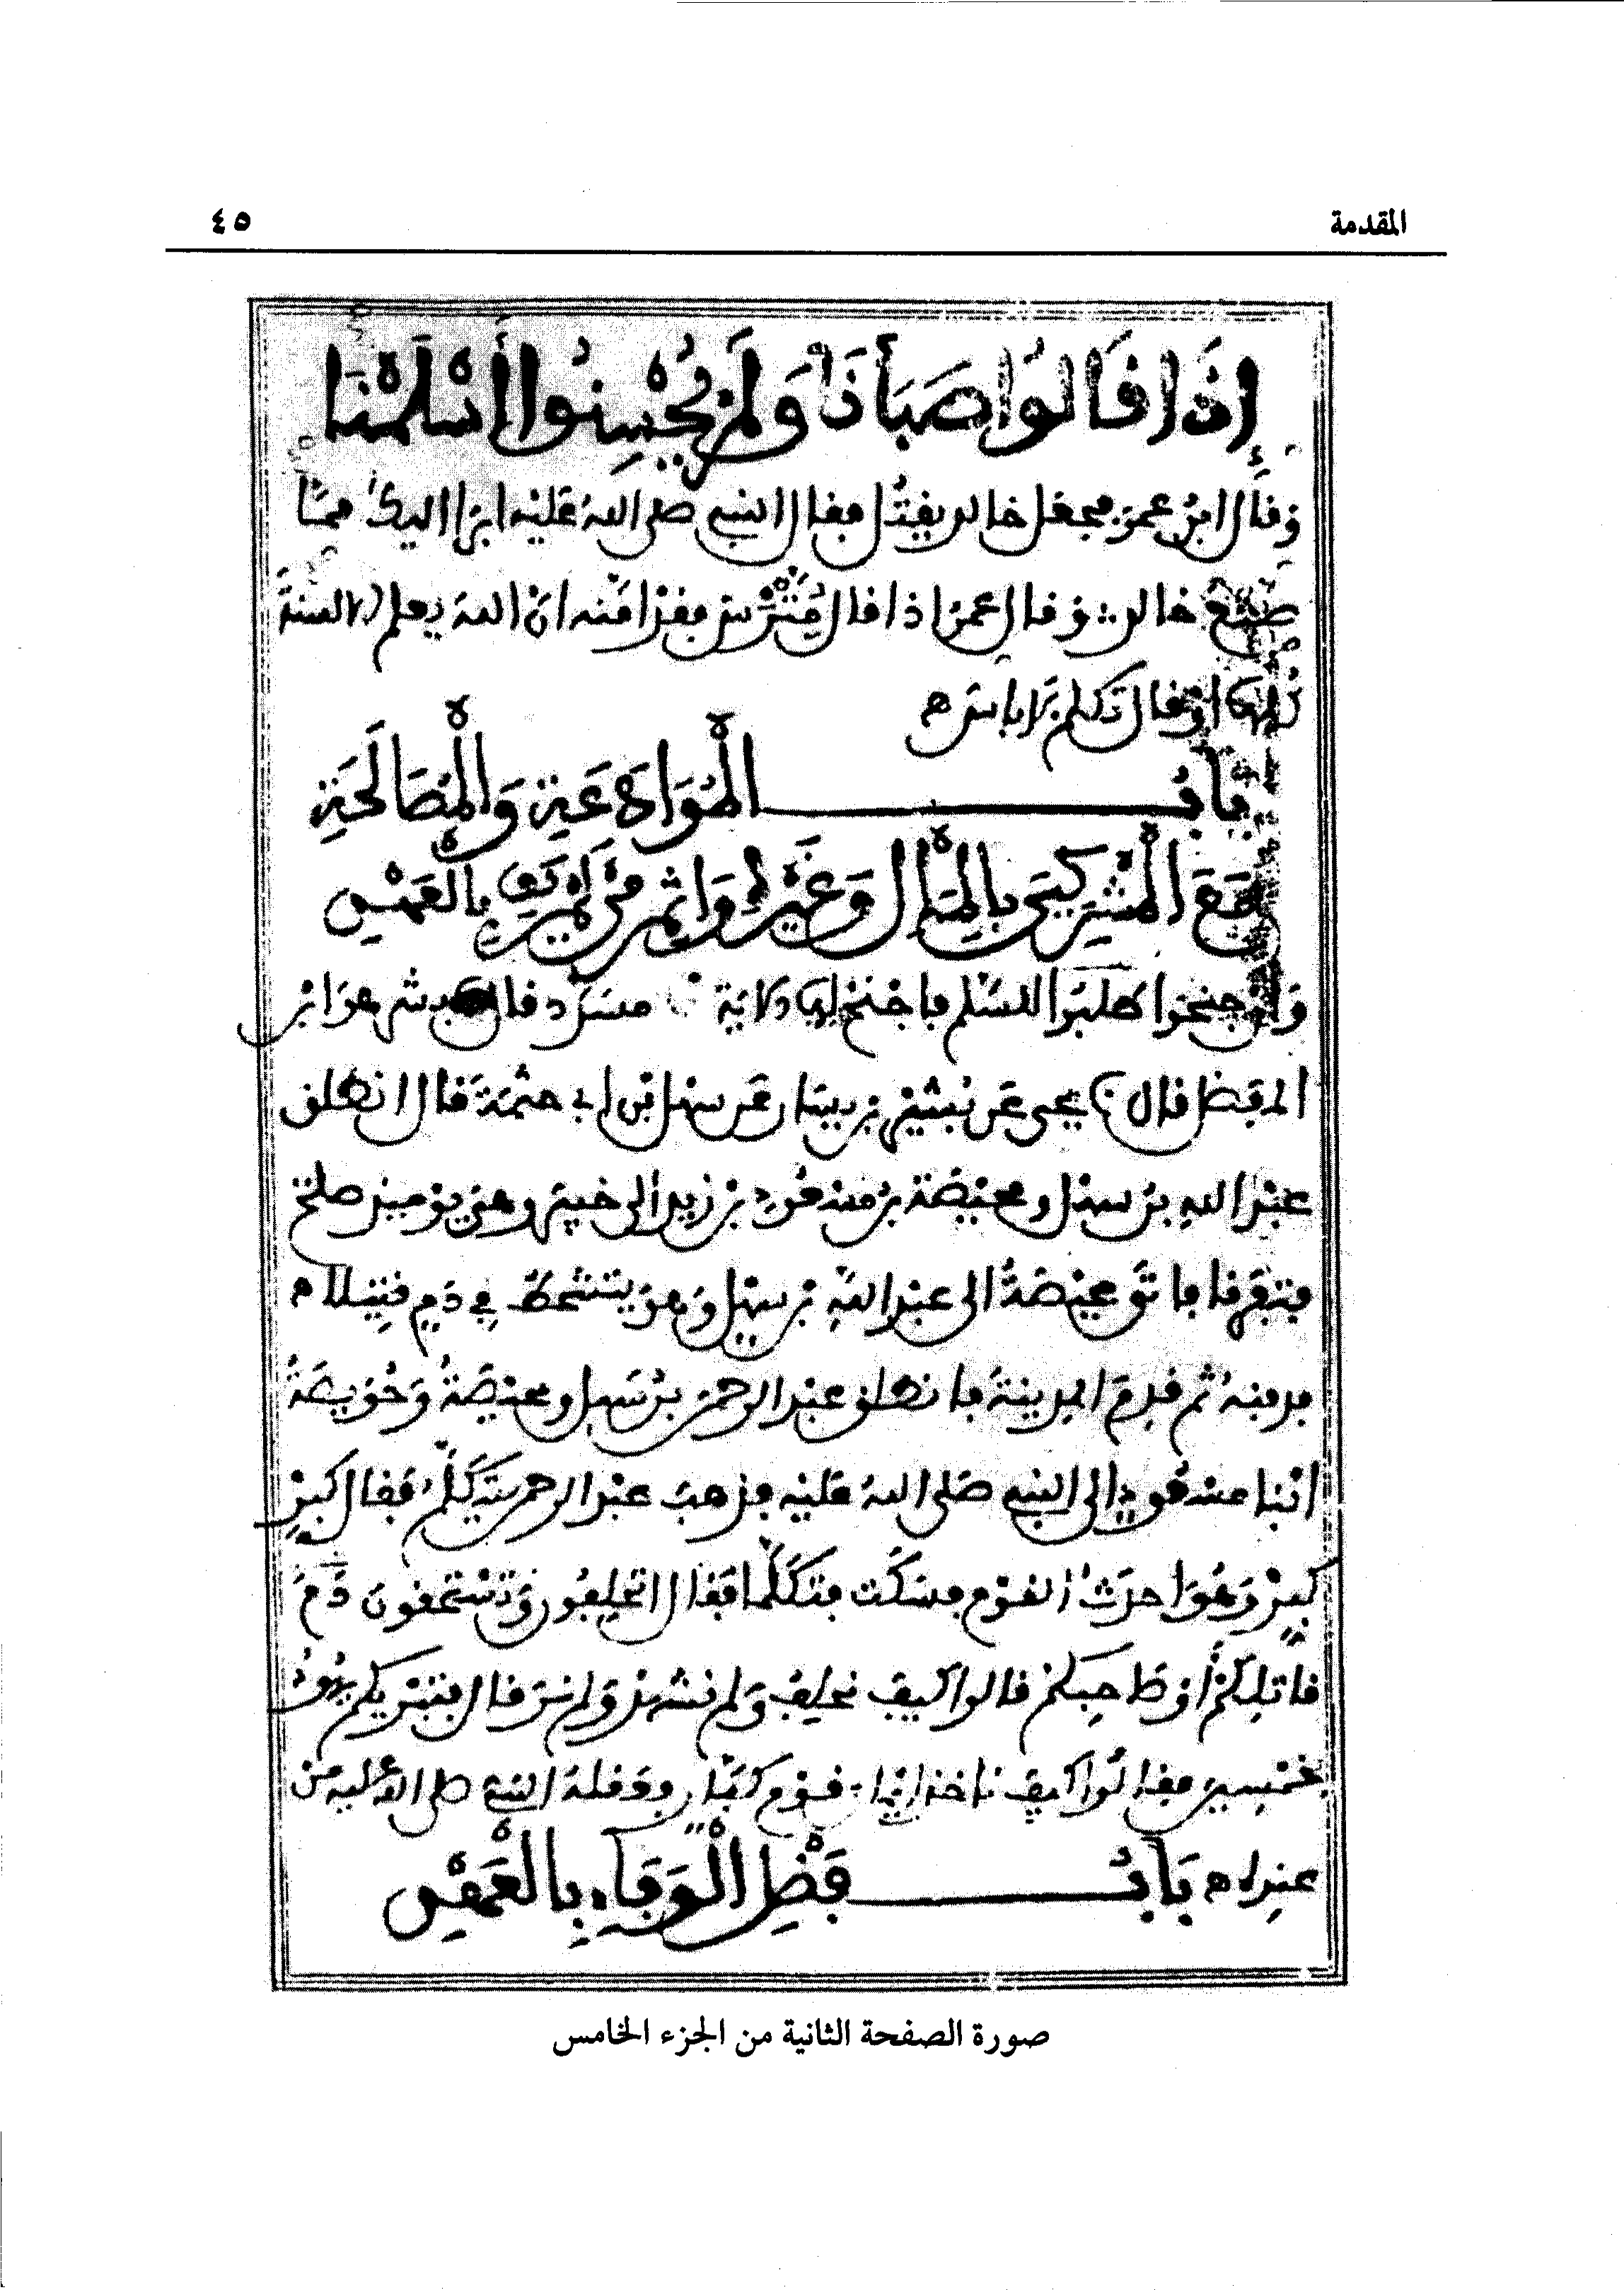 المقدمة ٤٥
إِذَا قَالُوا صَبَأْنَا وَلَمْ يُحْسِنُوا أَسْلَمْنَا
وقال ابن عمر فجعل خالد يقتل فقال النبي صلى الله عليه ابرا اليك مما
صنع خالد وقال عمر اذا قال مترس فقد امنه ان الله يعلم الالسنة
كلها او قال تكلم لا باس ه
بَابُ الْمُوَادَعَةِ وَالْمُصَالَحَةِ
مَعَ الْمُشْرِكِينَ بِالْمَالِ وَغَيْرِهِ وَإِثْمِ مَنْ لَمْ يَفِ بِالْعَهْدِ
وان جنحوا طلبوا للسلم فاجنح لها الاية مسدد قال بشر هو ابن
المفضل قال يحيى عن بشير بن يسار عن سهل بن ابي حثمة قال انطلق
عبد الله بن سهل ومحيصة بن مسعود بن زيد الى خيبر وهي يوميذ صلح
فتفرقا فاتى محيصة الى عبد الله بن سهل وهو يتشحط في دم قتيلا ه
فدفنه ثم قدم المدينة فانطلق عبد الرحمن بن سهل ومحيصة وحويصة
ابنا مسعود الى النبي صلى الله عليه فذهب عبد الرحمن يتكلم فقال كبر
كبر وهو احدث القوم فسكت فتكلما فقال اتحلفون وتستحقون دم
قاتلكم او صاحبكم قالوا كيف نحلف ولم نشهد ولم نر قال فتبريكم يهود
بخمسين فقالوا كيف ناخذ ايمان قوم كفار فعقله النبي صلى الله عليه من
عنده ه بَابُ فَضْلِ الْوَفَاءِ بِالْعَهْدِ
صورة الصفحة الثانية من الجزء الخامس